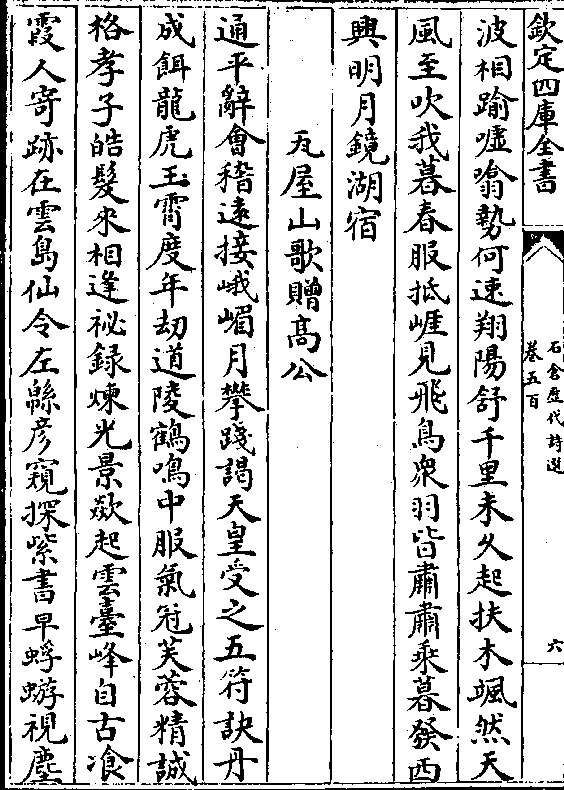 欽定四庫全書
石倉歷代詩選
卷五百
六
波相踰噓噏勢何速翔陽舒千里未久起扶木颯然天
風至吹我暮春服抵崕見飛鳥衆羽皆肅肅乘暮發西
興明月鏡湖宿
瓦屋山歌贈高公
通平辭會稽遠接峨嵋月攀踐謁天皇受之五符訣丹
成餌龍虎玉霄度年劫道陵鶴鳴中服氣冠芙蓉精誠
格孝子皓髮來相逢祕錄煉光景歘起雲臺峰自古飡
霞人寄跡在雲島仙令左緜彥窺探紫書早蜉蝣視塵